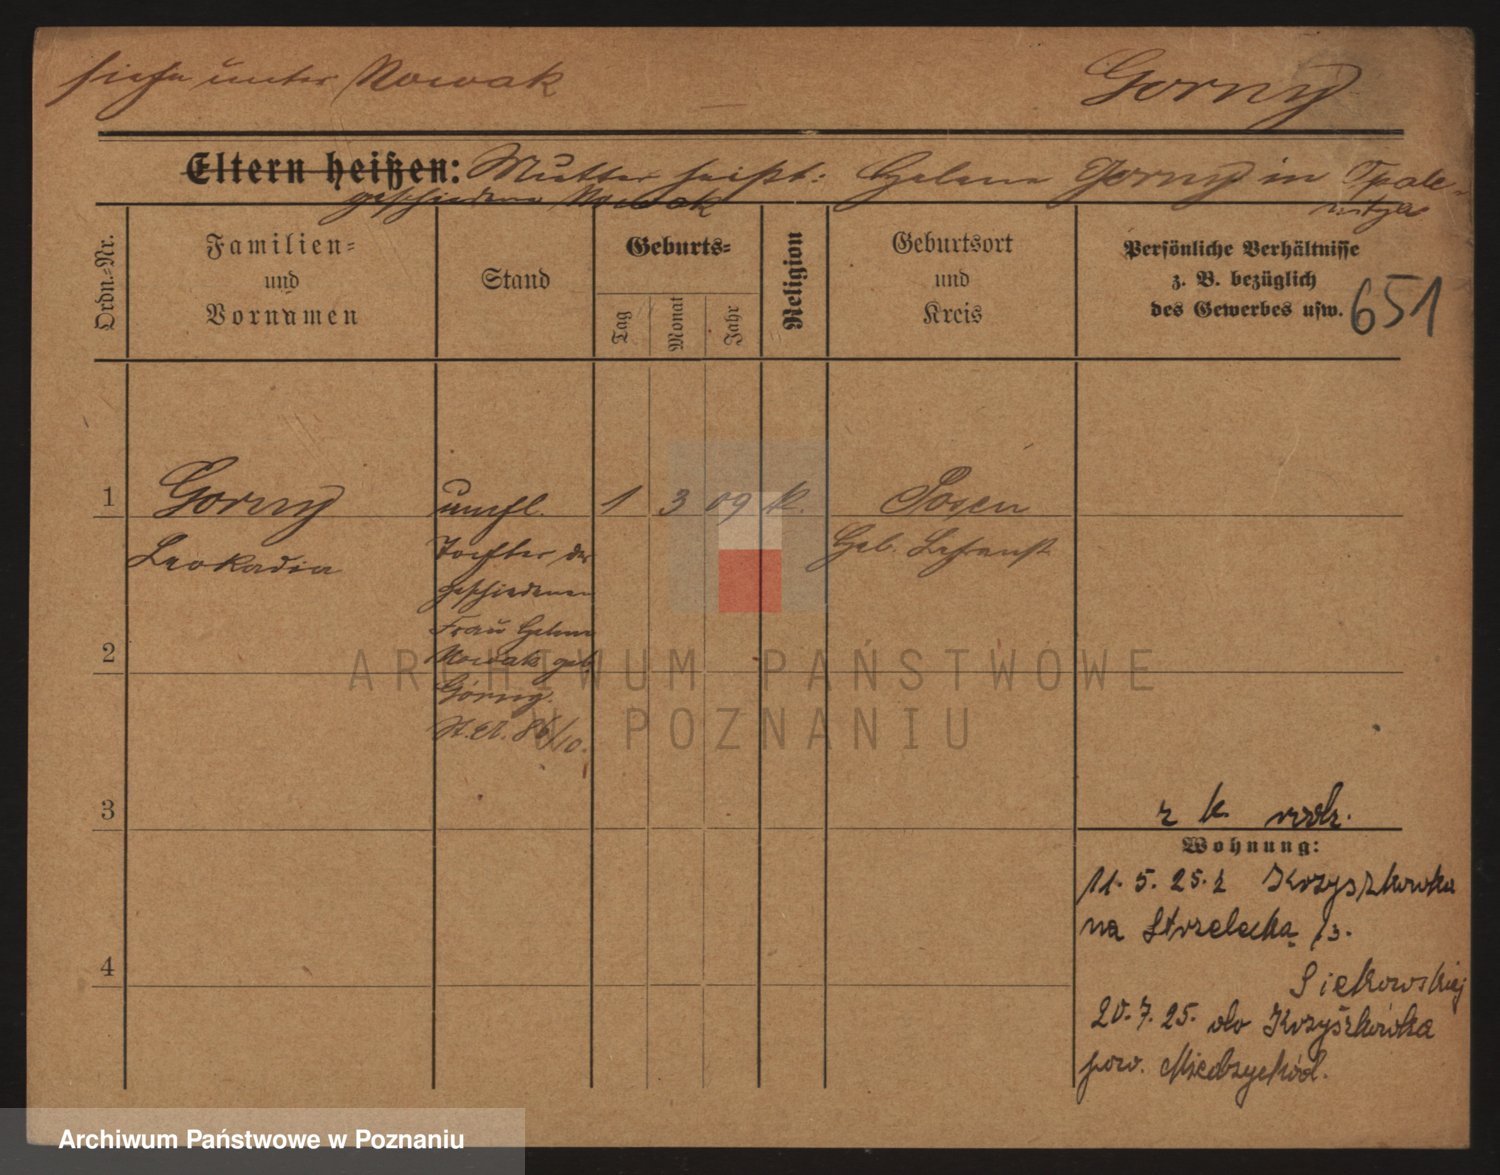 siehe unter Nowak
Gorny
Eltern heißen: Mutter heißt: Helene Gorny in Opale-
geschiedene Nowak
nitza
Ordn.-Nr.
Familien=
und
Vornamen
Stand
Geburts=
Tag
Monat
Jahr
Religion
Geburtsort
und
Kreis
Persönliche Verhältnisse
z. B. bezüglich
des Gewerbes usw.
651
1 Gorny unehl. 1 3 09 k. Posen
Leokadia
Tochter der
geschiedenen
Frau Helene
Nowak geb.
Górny.
St.A. 86/10.
Geb.
2
3
4
z k
Wohnung:
11. 5. 25. z Krzyszkówka
na Strzelecka 13.
Siekowskiej
20. 7. 25. do Krzyszkówka
pow. Międzychód.
ARCHIWUM PAŃSTWOWE
W POZNANIU
Archiwum Państwowe w Poznaniu